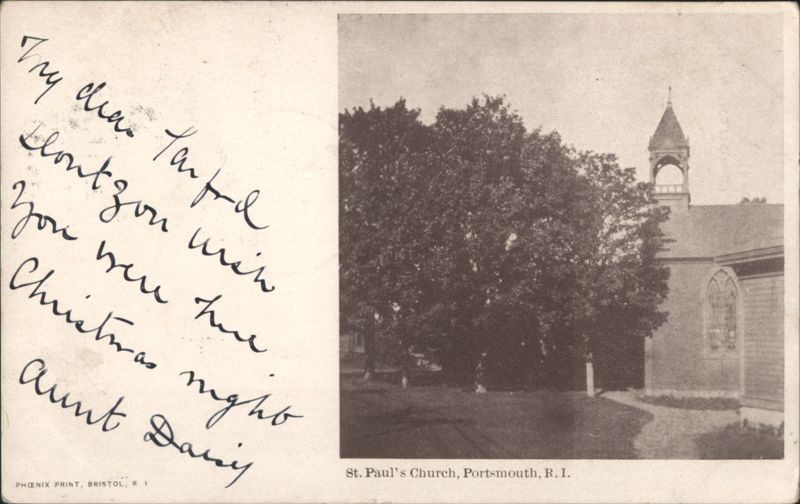 My dear Sanford
Don't you wish
you were here
Christmas night
Aunt Daisy
St. Paul's Church, Portsmouth, R. I.
PHŒNIX PRINT, BRISTOL, R I